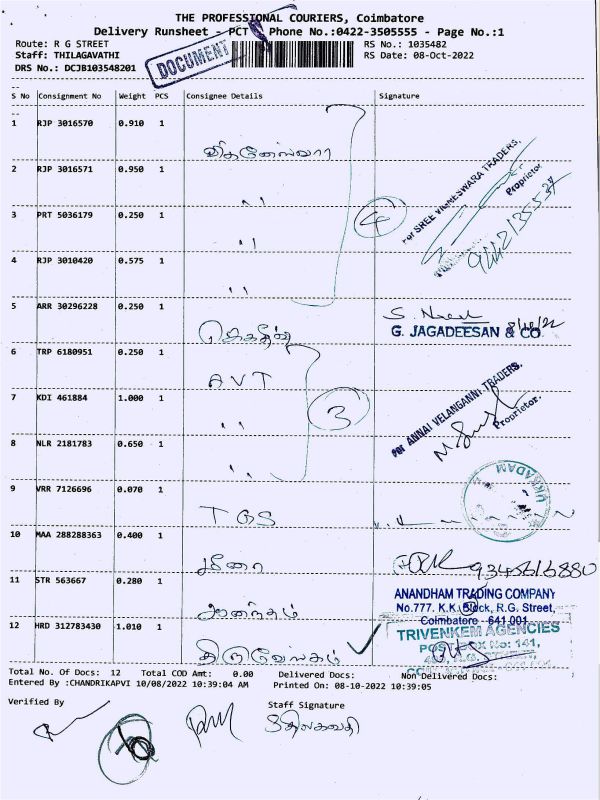 THE PROFESSIONAL COURIERS, Coimbatore
Delivery Runsheet - PCT Phone No.:0422-3505555 - Page No.:1
Route: R G STREET
RS No.: 1035482
Staff: THILAGAVATHI
RS Date: 08-Oct-2022
DRS No.: DCJB103548201
DOCUMENT
S No Consignment No Weight PCS Consignee Details Signature
1 RJP 3016570 0.910 1
2 RJP 3016571 0.950 1 "
3 PRT 5036179 0.250 1 "
4 RJP 3010420 0.575 1 "
4
For SREE VIGNESWARA TRADERS,
Proprietor
9442135537
5 ARR 30296228 0.250 1
G. JAGADEESAN & CO
6 TRP 6180951 0.250 1 AVT
7 KDI 461884 1.000 1 "
8 NLR 2181783 0.650 1 "
3
For ANNAI VELANGANNI TRADERS,
Proprietor.
9 VRR 7126696 0.070 1 TGS
UKKADAM
10 MAA 288288363 0.400 1 மீரை
9345616880
11 STR 563667 0.280 1 ஆனந்தம்
ANANDHAM TRADING COMPANY
No.777. K.K. Block, R.G. Street,
Coimbatore - 641 001
12 HRD 312783430 1.010 1
TRIVENKEM AGENCIES
POST BOX No: 141,
Total No. Of Docs: 12 Total COD Amt: 0.00 Delivered Docs: Non Delivered Docs:
Entered By :CHANDRIKAPVI 10/08/2022 10:39:04 AM Printed On: 08-10-2022 10:39:05
Verified By
Staff Signature
திலகவதி